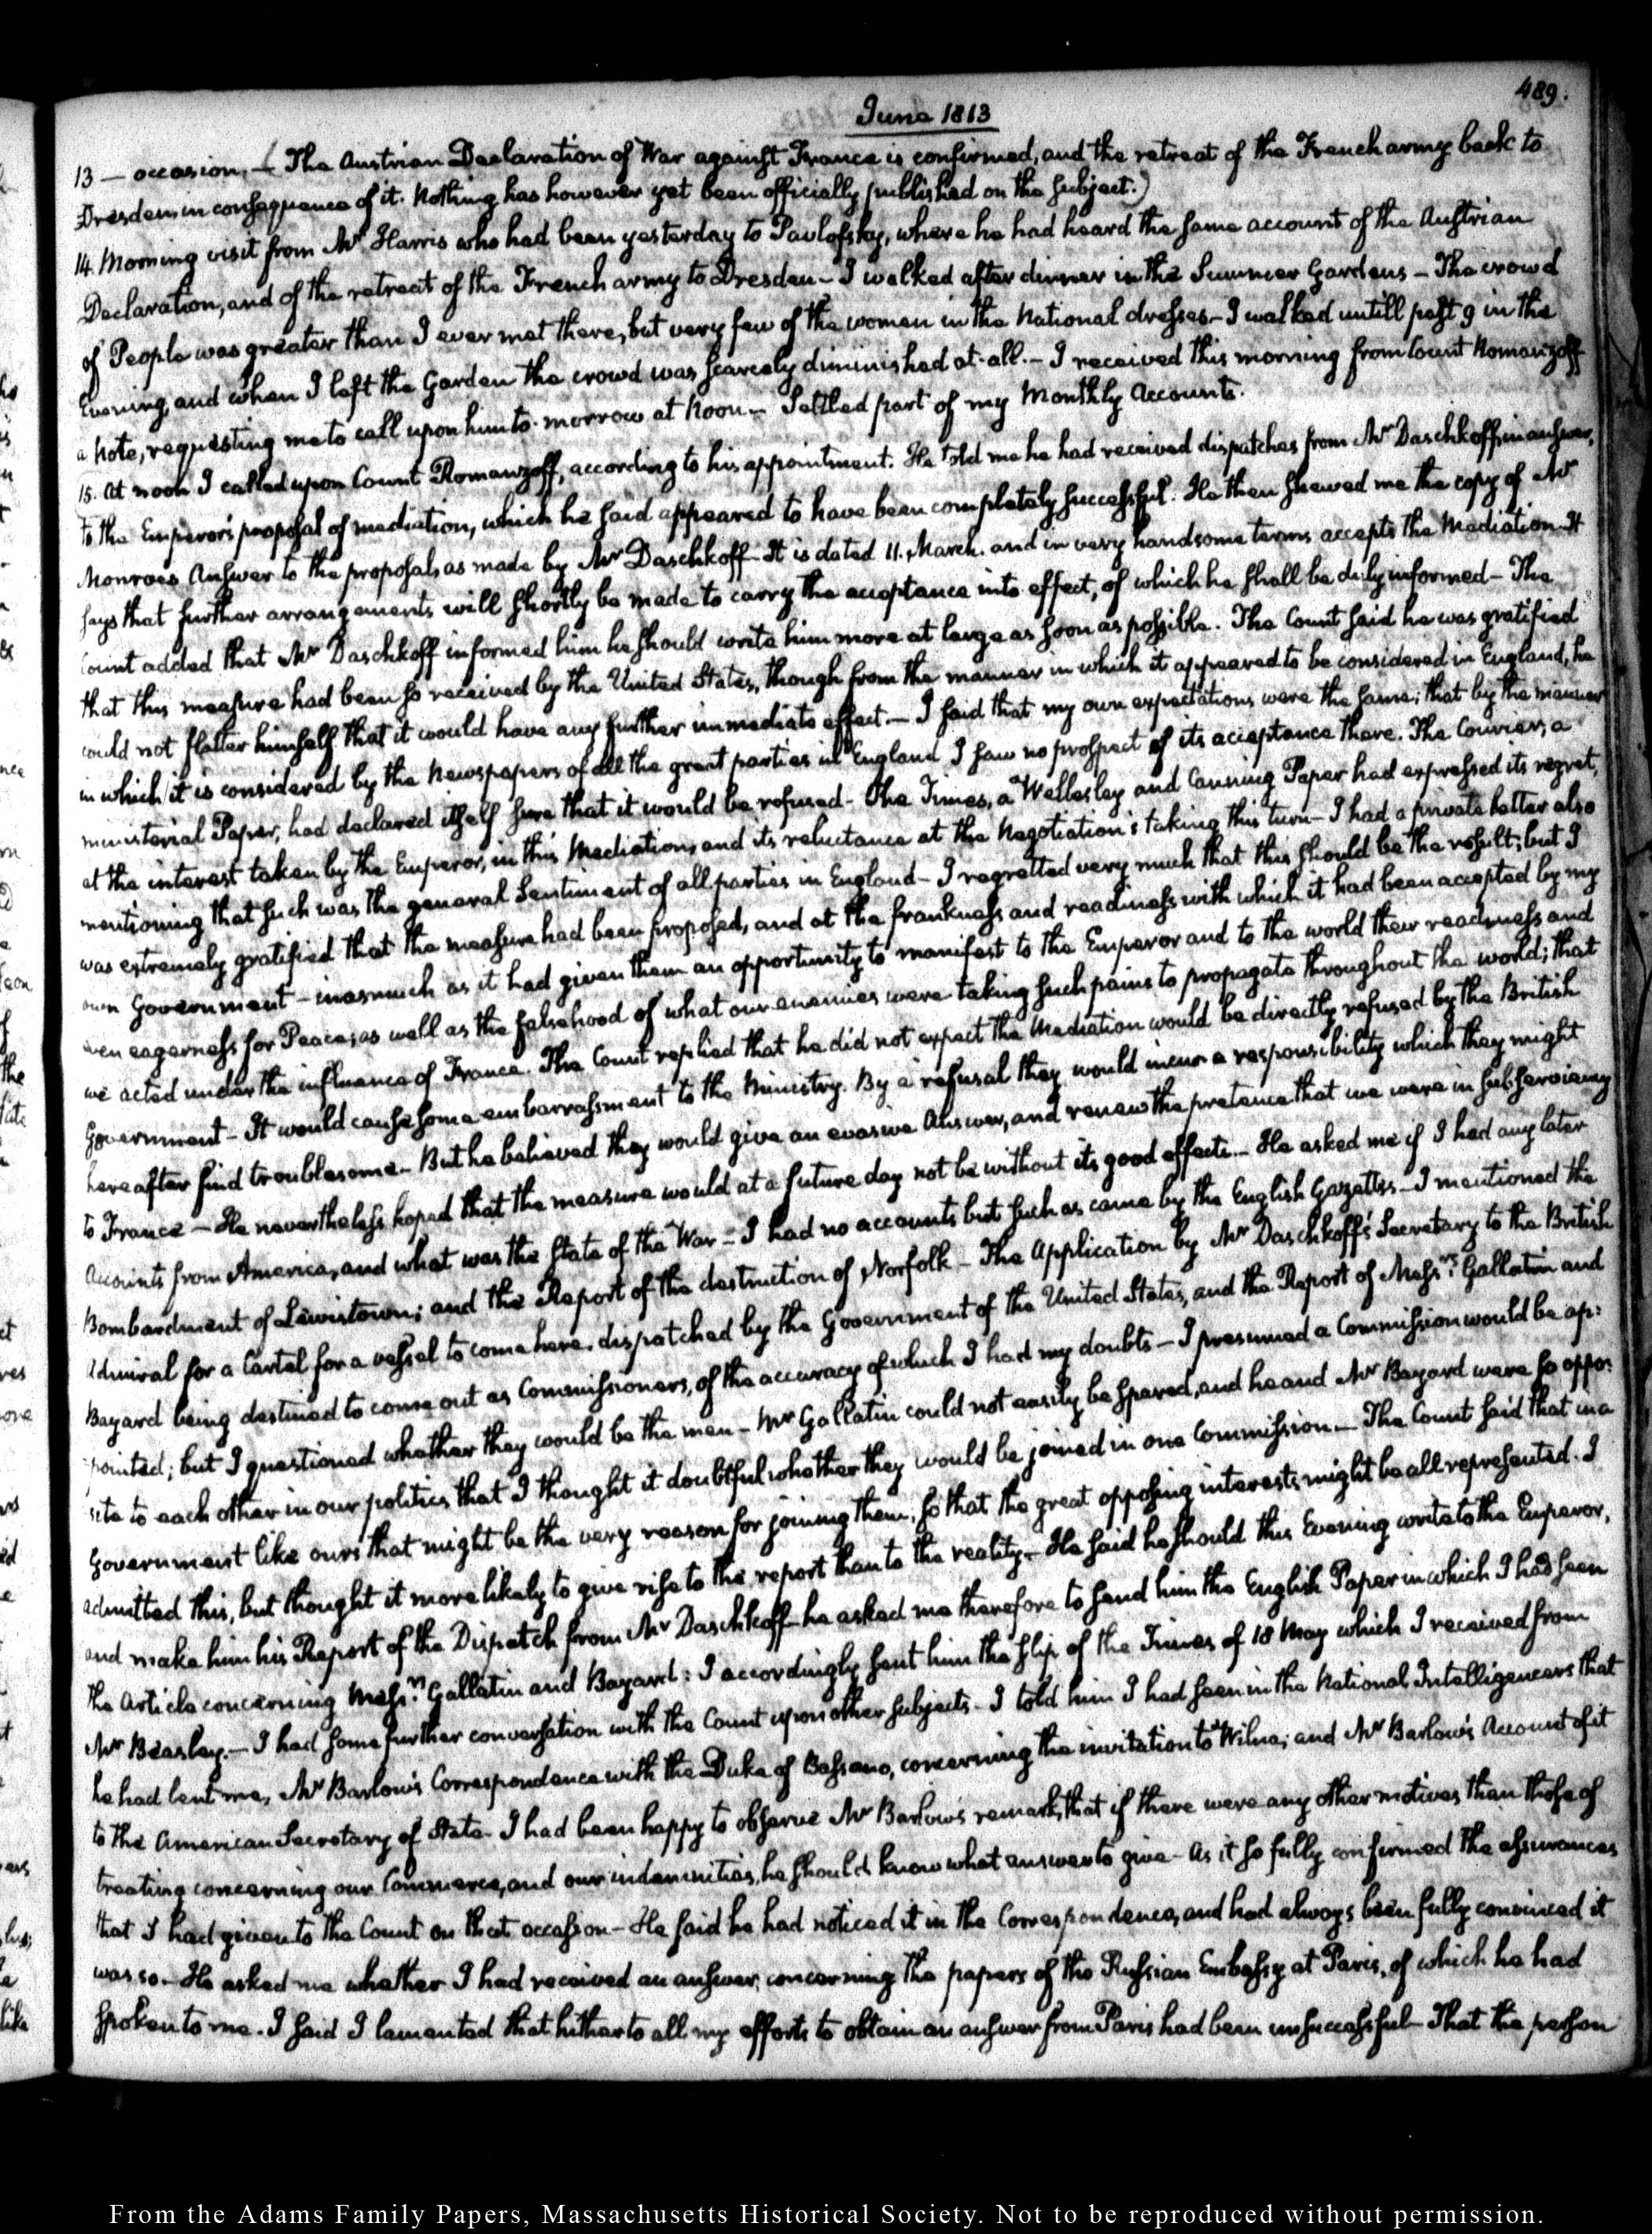 489.
June 1813
13 — occasion. — The Austrian Declaration of War against France is confirmed, and the retreat of the French army back to
Dresden in consequence of it. Nothing has however yet been officially published on the subject.)
14. Morning visit from Mr Harris who had been yesterday to Pavlofsky, where he had heard the same account of the Austrian
Declaration, and of the retreat of the French army to Dresden — I walked after dinner in the Summer Gardens — The crowd
of People was greater than I ever met there, but very few of the women in the National dresses — I walked untill past 9 in the
Evening, and when I left the Garden the crowd was scarcely diminished at-all. — I received this morning from Count Romanzoff
a Note, requesting me to call upon him to-morrow at Noon — Settled part of my Monthly Accounts.
15. At noon I called upon Count Romanzoff, according to his appointment. He told me he had received dispatches from Mr Daschkoff, in answer,
to the Emperor's proposal of mediation, which he said appeared to have been completely successful. He then shewed me the copy of Mr
Monroe's Answer to the proposals as made by Mr Daschkoff — It is dated 11. March. and in very handsome terms accepts the Mediation — It
says that further arrangements will shortly be made to carry the acceptance into effect, of which he shall be duly informed — The
Count added that Mr Daschkoff informed him he should write him more at large as soon as possible. The Count said he was gratified
that this measure had been so received by the United States, though from the manner in which it appeared to be considered in England, he
could not flatter himself that it would have any further immediate effect. — I said that my own expectations were the same; that by the manner
in which it is considered by the Newspapers of all the great parties in England I saw no prospect of its acceptance there. The Courier, a
ministerial Paper, had declared itself sure that it would be refused — The Times, a Wellesley and Canning Paper had expressed its regret,
at the interest taken by the Emperor, in this Mediation, and its reluctance at the Negotiation's taking this turn — I had a private letter also
mentioning that such was the general Sentiment of all parties in England — I regretted very much that this should be the result; but I
was extremely gratified that the measure had been proposed, and at the frankness and readiness with which it had been accepted by my
own Government — inasmuch as it had given them an opportunity to manifest to the Emperor and to the world their readiness and
even eagerness for Peace; as well as the falsehood of what our enemies were taking such pains to propagate throughout the world; that
we acted under the influence of France. The Count replied that he did not expect the Mediation would be directly refused by the British
Government — It would cause some embarrassment to the Ministry. By a refusal they would incur a responsibility which they might
hereafter find troublesome — But he believed they would give an evasive Answer, and renew the pretence that we were in subserviency
to France — He nevertheless hoped that the measure would at a future day not be without its good effects. — He asked me if I had any later
Accounts from America, and what was the State of the War — I had no accounts but such as came by the English Gazettes — I mentioned the
Bombardment of Lewistown; and the Report of the destruction of Norfolk — The Application by Mr Daschkoff's Secretary to the British
Admiral for a Cartel for a vessel to come here dispatched by the Government of the United States, and the Report of Messrs Gallatin and
Bayard being destined to come out as Commissioners, of the accuracy of which I had my doubts — I presumed a Commission would be ap:
pointed; but I questioned whether they would be the men — Mr Gallatin could not easily be spared, and he and Mr Bayard were so oppo:
site to each other in our politics that I thought it doubtful whether they would be joined in one Commission — The Count said that in a
Government like ours that might be the very reason for joining them. So that the great opposing interests might be all represented. I
admitted this, but thought it more likely to give rise to the report than to the reality — He said he should this Evening write to the Emperor,
and make him his Report of the Dispatch from Mr Daschkoff — he asked me therefore to send him the English Paper in which I had seen
the Article concerning Messrs Gallatin and Bayard: I accordingly sent him the slip of the Times of 18 May which I received from
Mr Beasley. — I had some further conversation with the Count upon other subjects — I told him I had seen in the National Intelligencers that
he had lent me, Mr Barlow's Correspondence with the Duke of Bassano, concerning the invitation to Wilna; and Mr Barlow's Account of it
to the American Secretary of State — I had been happy to observe Mr Barlow's remark, that if there were any other motives than those of
treating concerning our Commerce, and our indemnities, he should know what answer to give — As it so fully confirmed the assurances
that I had given to the Count on that occasion — He said he had noticed it in the Correspondence, and had always been fully convinced it
was so. — He asked me whether I had received an answer, concerning the papers of the Russian Embassy at Paris, of which he had
spoken to me. I said I lamented that hitherto all my efforts to obtain an answer from Paris had been unsuccessful — That the person
From the Adams Family Papers, Massachusetts Historical Society. Not to be reproduced without permission.